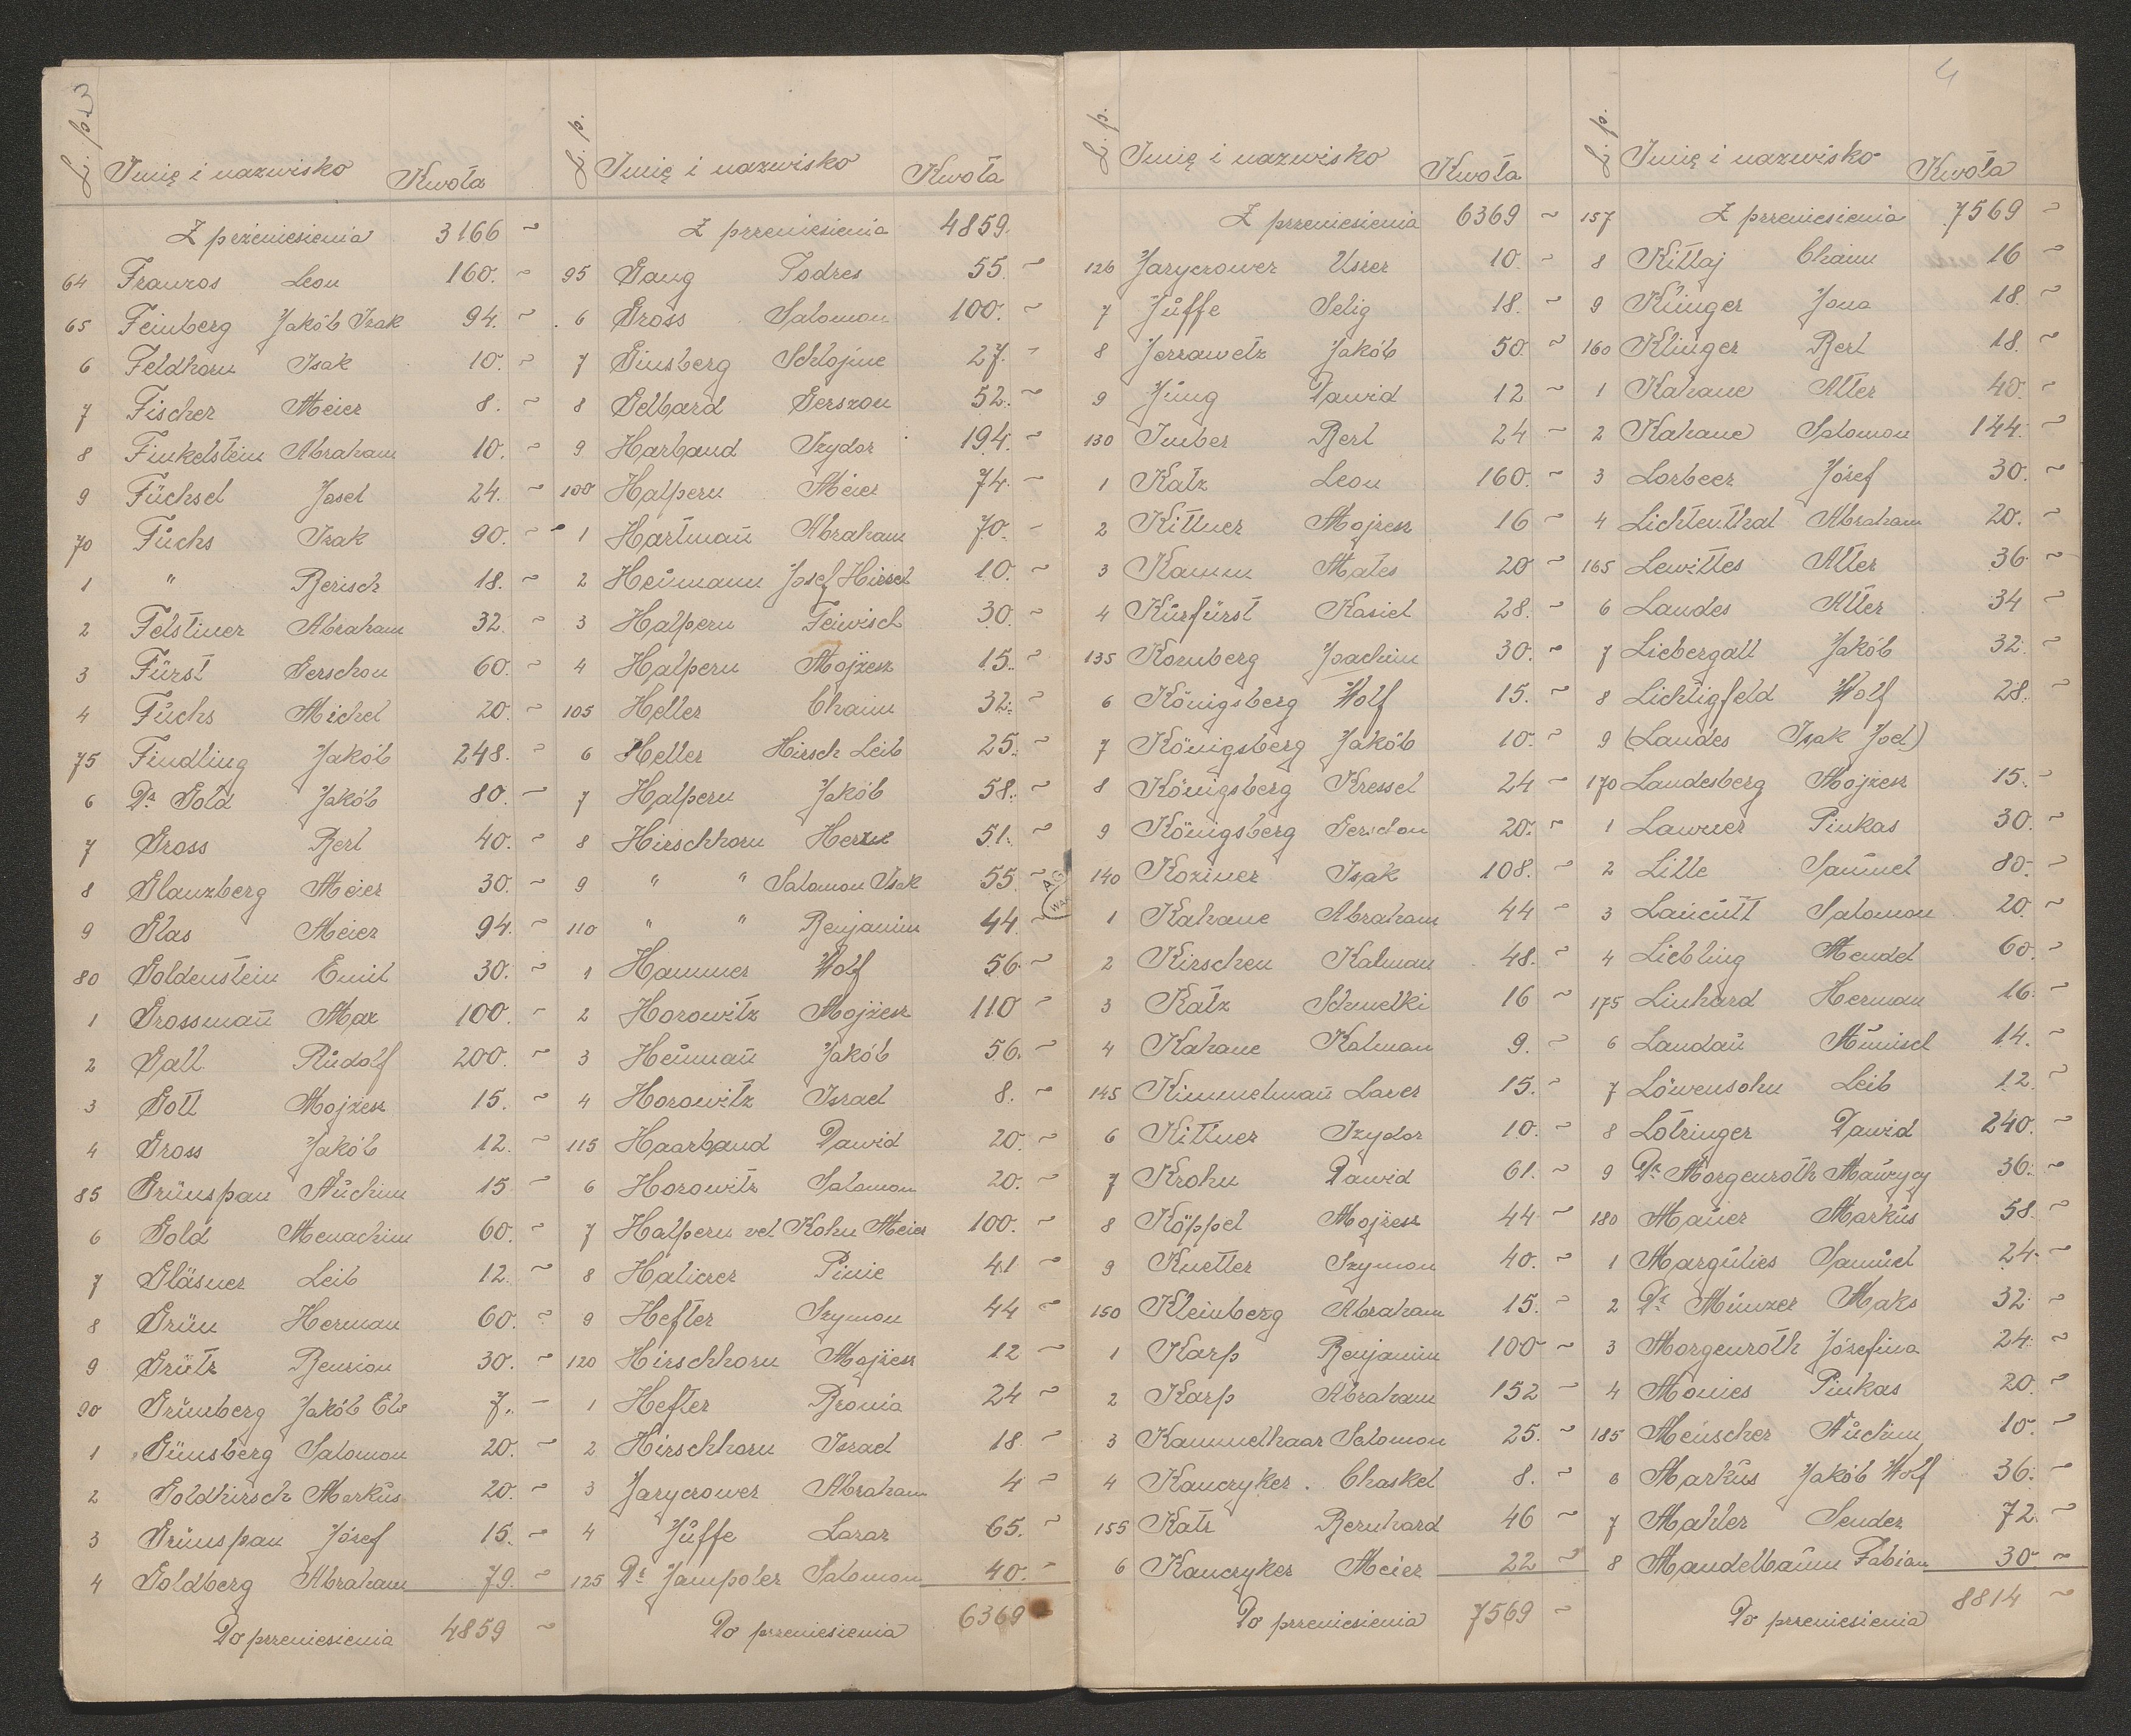 3
L. p. Imię i nazwisko Kwota
Z przeniesienia 3166 ~
64 Franzos Leon 160. ~
65 Feinberg Jakób Izak 94. ~
6 Feldhorn Isak 10. ~
7 Fischer Meier 8. ~
8 Finkelstein Abraham 10. ~
9 Füchsel Josel 24. ~
70 Fuchs Izak 90. ~
1 " Berisch 18. ~
2 Felstiner Abraham 32. ~
3 Fürst Gerschon 60. ~
4 Fuchs Michel 20. ~
75 Findling Jakób 248. ~
6 Dr. Gold Jakób 80. ~
7 Gross Berl 40. ~
8 Glanzberg Meier 30. ~
9 Glas Meier 94. ~
80 Goldenstein Emil 30. ~
1 Grossman̄ Max 100. ~
2 Gall Rudolf 200. ~
3 Gott Mojżesz 15. ~
4 Gross Jakób 12. ~
85 Grünspan Nuchim 15 ~
6 Gold Menachim 60. ~
7 Gläsner Leib 12. ~
8 Grün Herman 60. ~
9 Grütz Benzion 30. ~
90 Grünberg Jakób Ele 7. ~
1 Günsberg Salomon 20. ~
2 Goldhirsch Markus 20. ~
3 Grünspan Józef 15. ~
4 Goldberg Abraham 79. ~
Do przeniesienia 4859 ~
L. p. Imię i nazwisko Kwota
Z przeniesienia 4859.
95 Gang Todres 55. ~
6 Gross Salomon 100. ~
7 Ginsberg Schlojme 27. ~
8 Gelbard Gerszon 52. ~
9 Harband Izydor 194. ~
100 Halpern Meier 74. ~
1 Hartman̄ Abraham 70. ~
2 Heumann Josef Hirsch 10. ~
3 Halpern Feiwisch 30. ~
4 Halpern Mojżesz 15. ~
105 Heller Chaim 32. ~
6 Heller Hirsch Leib 25. ~
7 Halpern Jakób 58. ~
8 Hirschhorn Hersz 51. ~
9 " " Salomon Isak 55. ~
110 " " Benjamin 44. ~
1 Hammer Wolf 56 ~
2 Horowitz Mojżesz 110 ~
3 Heuman̄ Jakób 56. ~
4 Horowitz Israel 8. ~
115 Haarband Dawid 20. ~
6 Horowitz Salomon 20. ~
7 Halpern vel Kohn Meier 100. ~
8 Haliczer Pinie 41 ~
9 Hefter Szymon 44 ~
120 Hirschhorn Mojżesz 12 ~
1 Hefter Bronia 24 ~
2 Hirschhorn Israel 18. ~
3 Jaryczower Abraham 4 ~
4 Juffe Lazar 65. ~
125 Dr. Jampoler Salomon 40. ~
Do przeniesienia 6369
L. p. Imię i nazwisko Kwota
Z przeniesienia 6369 ~
126 Jaryczower Uszer 10. ~
7 Juffe Selig 18. ~
8 Jerrawetz Jakób 50. ~
9 Jung Dawid 12 ~
130 Imber Berl 24 ~
1 Katz Leon 160. ~
2 Kittner Mojżesz 16 ~
3 Kamm Mates 20 ~
4 Kurfürst Kasiel 28. ~
135 Kornberg Joachim 30. ~
6 Königsberg Wolf 15. ~
7 Königsberg Jakób 10. ~
8 Königsberg Kressel 24 ~
9 Königsberg Gerschon 20. ~
140 Koziner Isak 108. ~
1 Kahane Abraham 44 ~
2 Kirschen Kalman 48. ~
3 Katz Schmelki 16 ~
4 Kahane Kalman 9. ~
145 Kimmelman̄ Lazer 15. ~
6 Kittner Izydor 10. ~
7 Krohn Dawid 61. ~
8 Köppel Mojżesz 44 ~
9 Knetter Szymon 40. ~
150 Kleinberg Abraham 15. ~
1 Karp Benjamin 100 ~
2 Karp Abraham 152 ~
3 Kammelhaar Salomon 25. ~
4 Kanczyker Chaskel 8. ~
155 Katz Bernhard 46 ~
6 Kanczyker Meier 22 ~
Do przeniesienia 7569 ~
4
L. p. Imię i nazwisko Kwota
157 Z przeniesienia 7569 ~
8 Kittaj Chaim 16 ~
9 Klinger Jona 18. ~
160 Klinger Berl 18. ~
1 Kahane Alter 40. ~
2 Kahane Salomon 144. ~
3 Lorbeer Józef 30. ~
4 Lichtenthal Abraham 20. ~
165 Lewittes Alter 36 ~
6 Landes Alter 34 ~
7 Liebergall Jakób 32. ~
8 Lichtigfeld Wolf 28. ~
9 (Landes Isak Joel)
170 Landesberg Mojżesz 15. ~
1 Lawner Pinkas 30. ~
2 Lille Samuel 80. ~
3 Lancutt Salomon 20. ~
4 Liebling Mendel 60. ~
175 Linhard Herman 16. ~
6 Landau Munisch 14. ~
7 Löwensohn Leib 12. ~
8 Lotringer Dawid 240. ~
9 Dr. Morgenroth Maurycy 36. ~
180 Mauer Markus 58. ~
1 Margulies Samuel 24. ~
2 Dr. Münzer Maks 32. ~
3 Morgenroth Józefina 24. ~
4 Monies Pinkas 20. ~
185 Meuscher Nuchim 10. ~
6 Markus Jakób Wolf 36. ~
7 Mahler Sender 72. ~
8 Mandelbaum Fabian 30. ~
Do przeniesienia 8814 ~